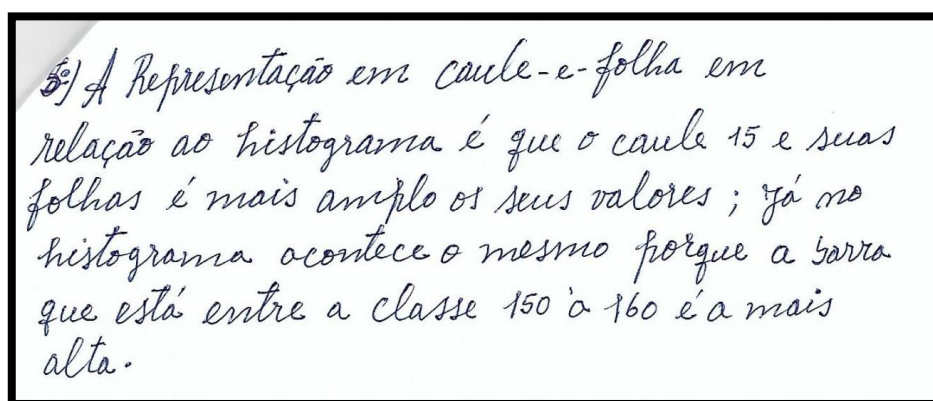 5º) A Representação em caule-e-folha em
relação ao histograma é que o caule 15 e suas
folhas é mais amplo os seus valores; já no
histograma acontece o mesmo porque a barra
que está entre a classe 150 à 160 é a mais
alta.